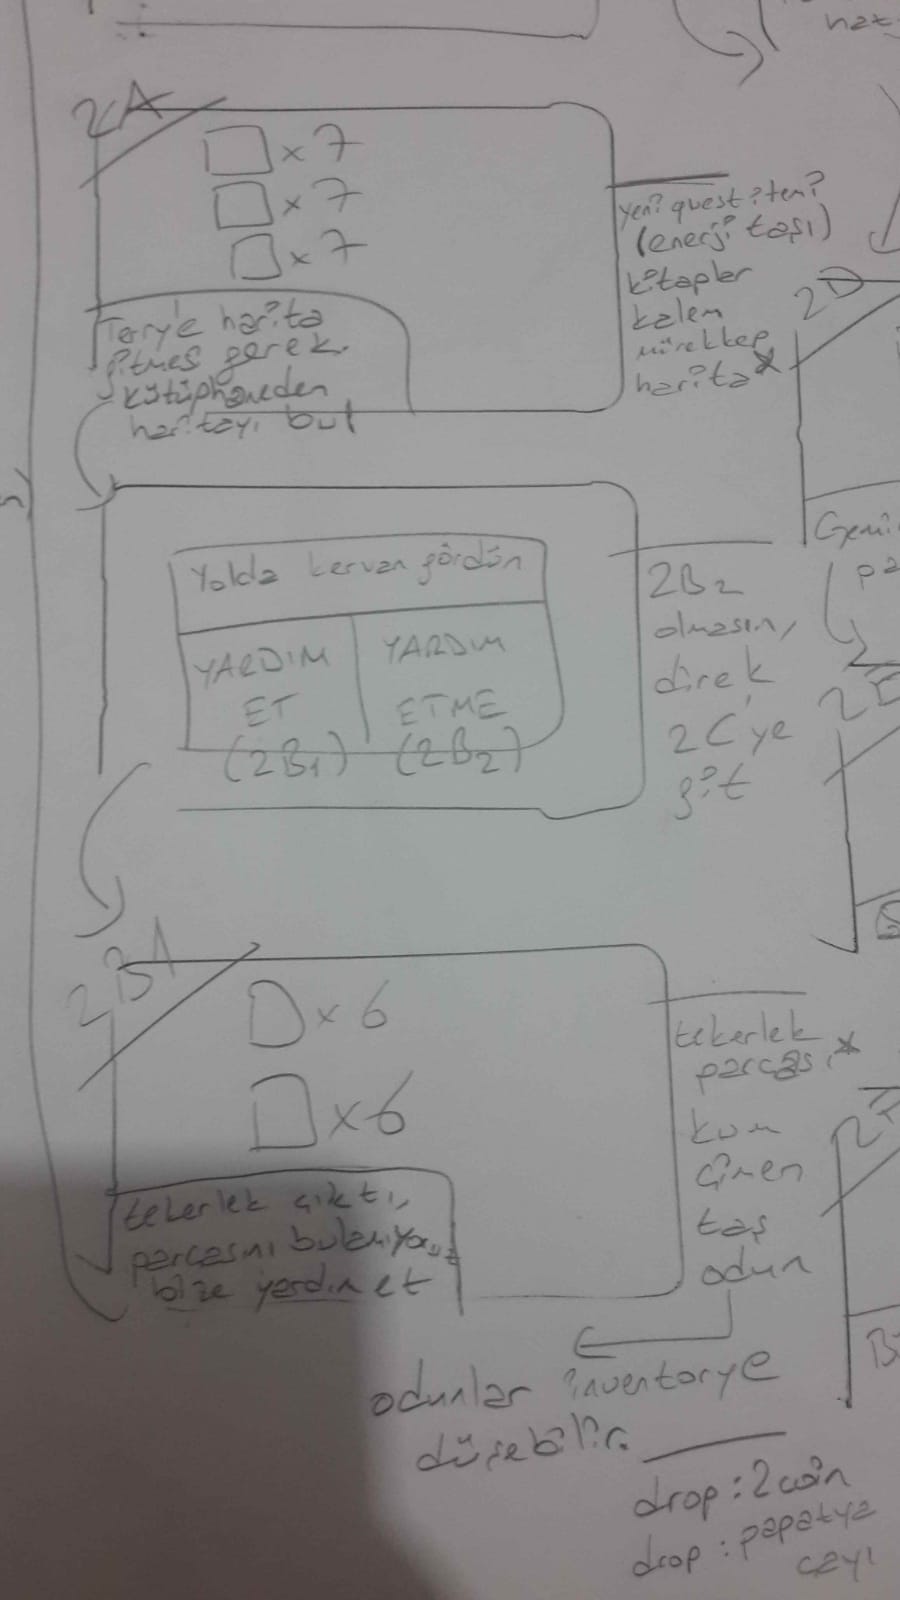 2A
x 7
x 7
x 7
Terry'e harita
gitmes gerek.
kütüphaneden
haritayı bul
yeni quest itemi
(enerji taşı)
kitaplar
kalem
mürekkep
harita*
Yolda kervan gördün
YARDIM
ET
(2B1)
YARDIM
ETME
(2B2)
2B2
olmasın,
direk
2C'ye
git
2B1
x 6
x 6
tekerlek çıktı,
parçasını bulamıyoruz
bize yardım et
tekerlek
parçası*
kum
çimen
taş
odun
odunlar inventorye
düşebilir.
drop: 2 coin
drop: papatya
çayı
2D
Gemi
pa
2E
2F
B